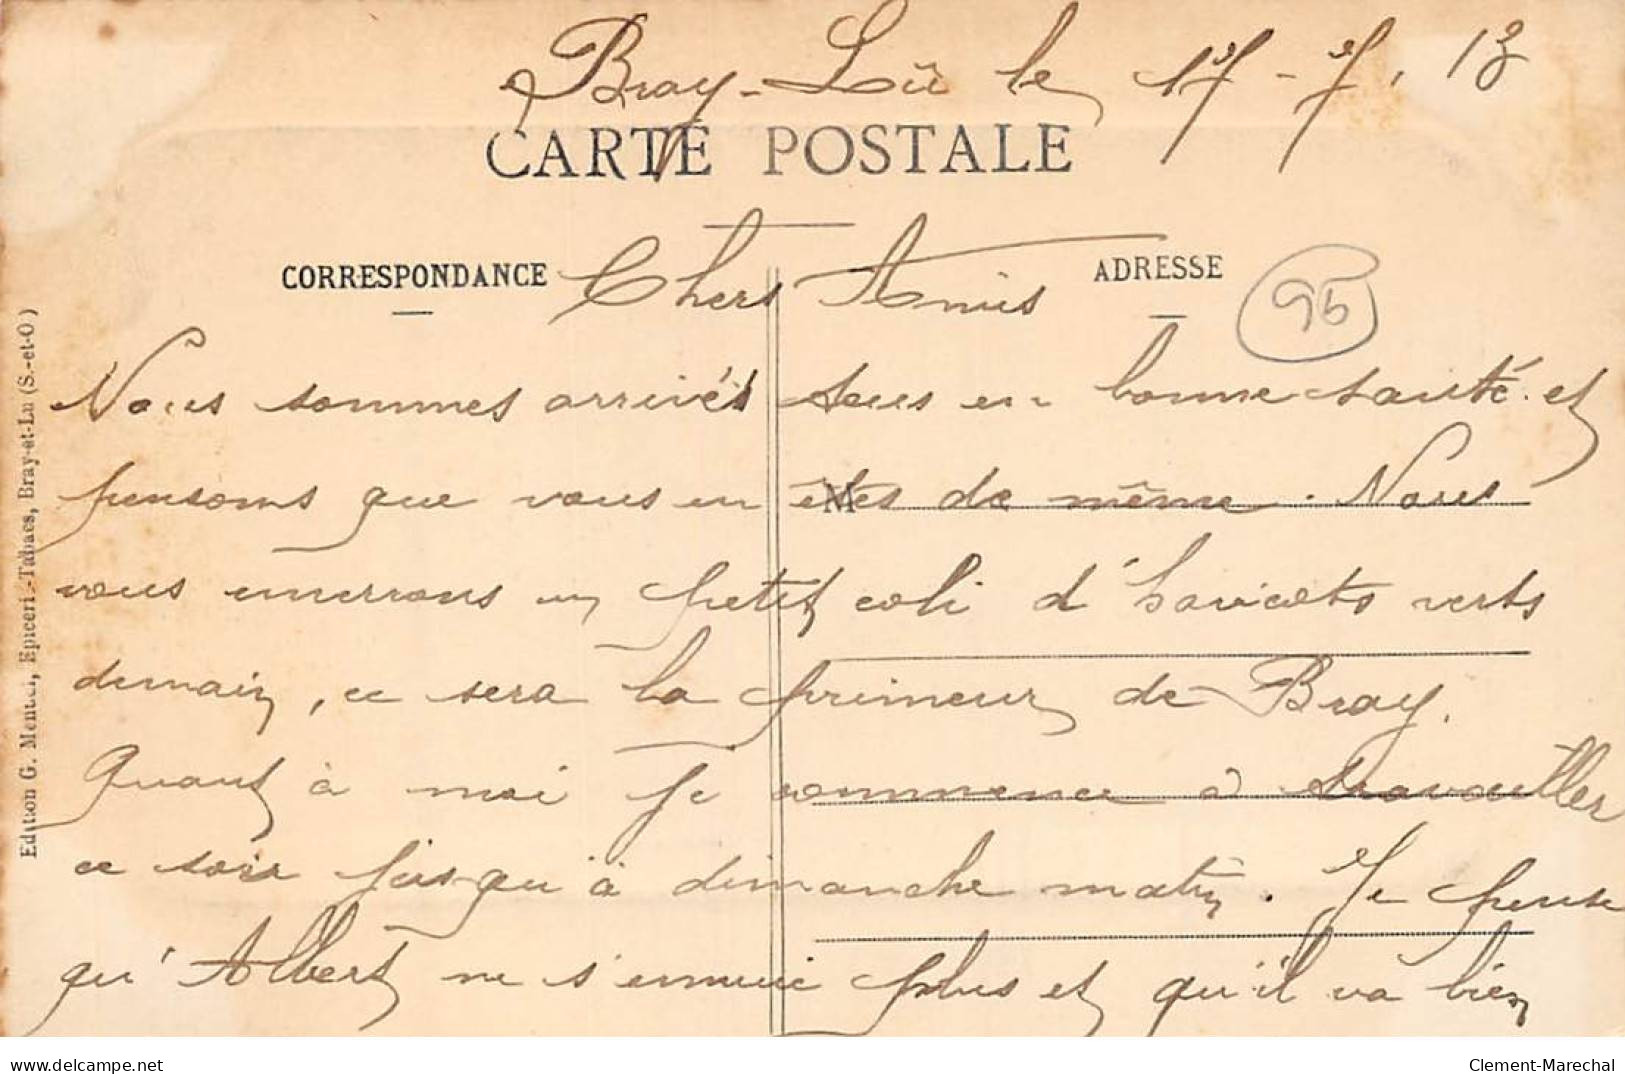 Bray-Lû le 17-7.13
CARTE POSTALE
CORRESPONDANCE
Chers Amis
ADRESSE
95
Nous sommes arrivés tous en bonne santé et
pensons que vous en êtes de même. Nous
M
vous enverrons un petit coli d'haricots verts
demain, ce sera la primeur de Bray.
Quant à moi je commence à travailler
ce soir jusqu'à dimanche matin. Je pense
qu'Albert ne s'ennuie plus et qu'il va bien
Edition G. Epicerie-Tabacs, Bray-et-Lu (S.-et-O.)
www.delcampe.net
Clement-Marechal